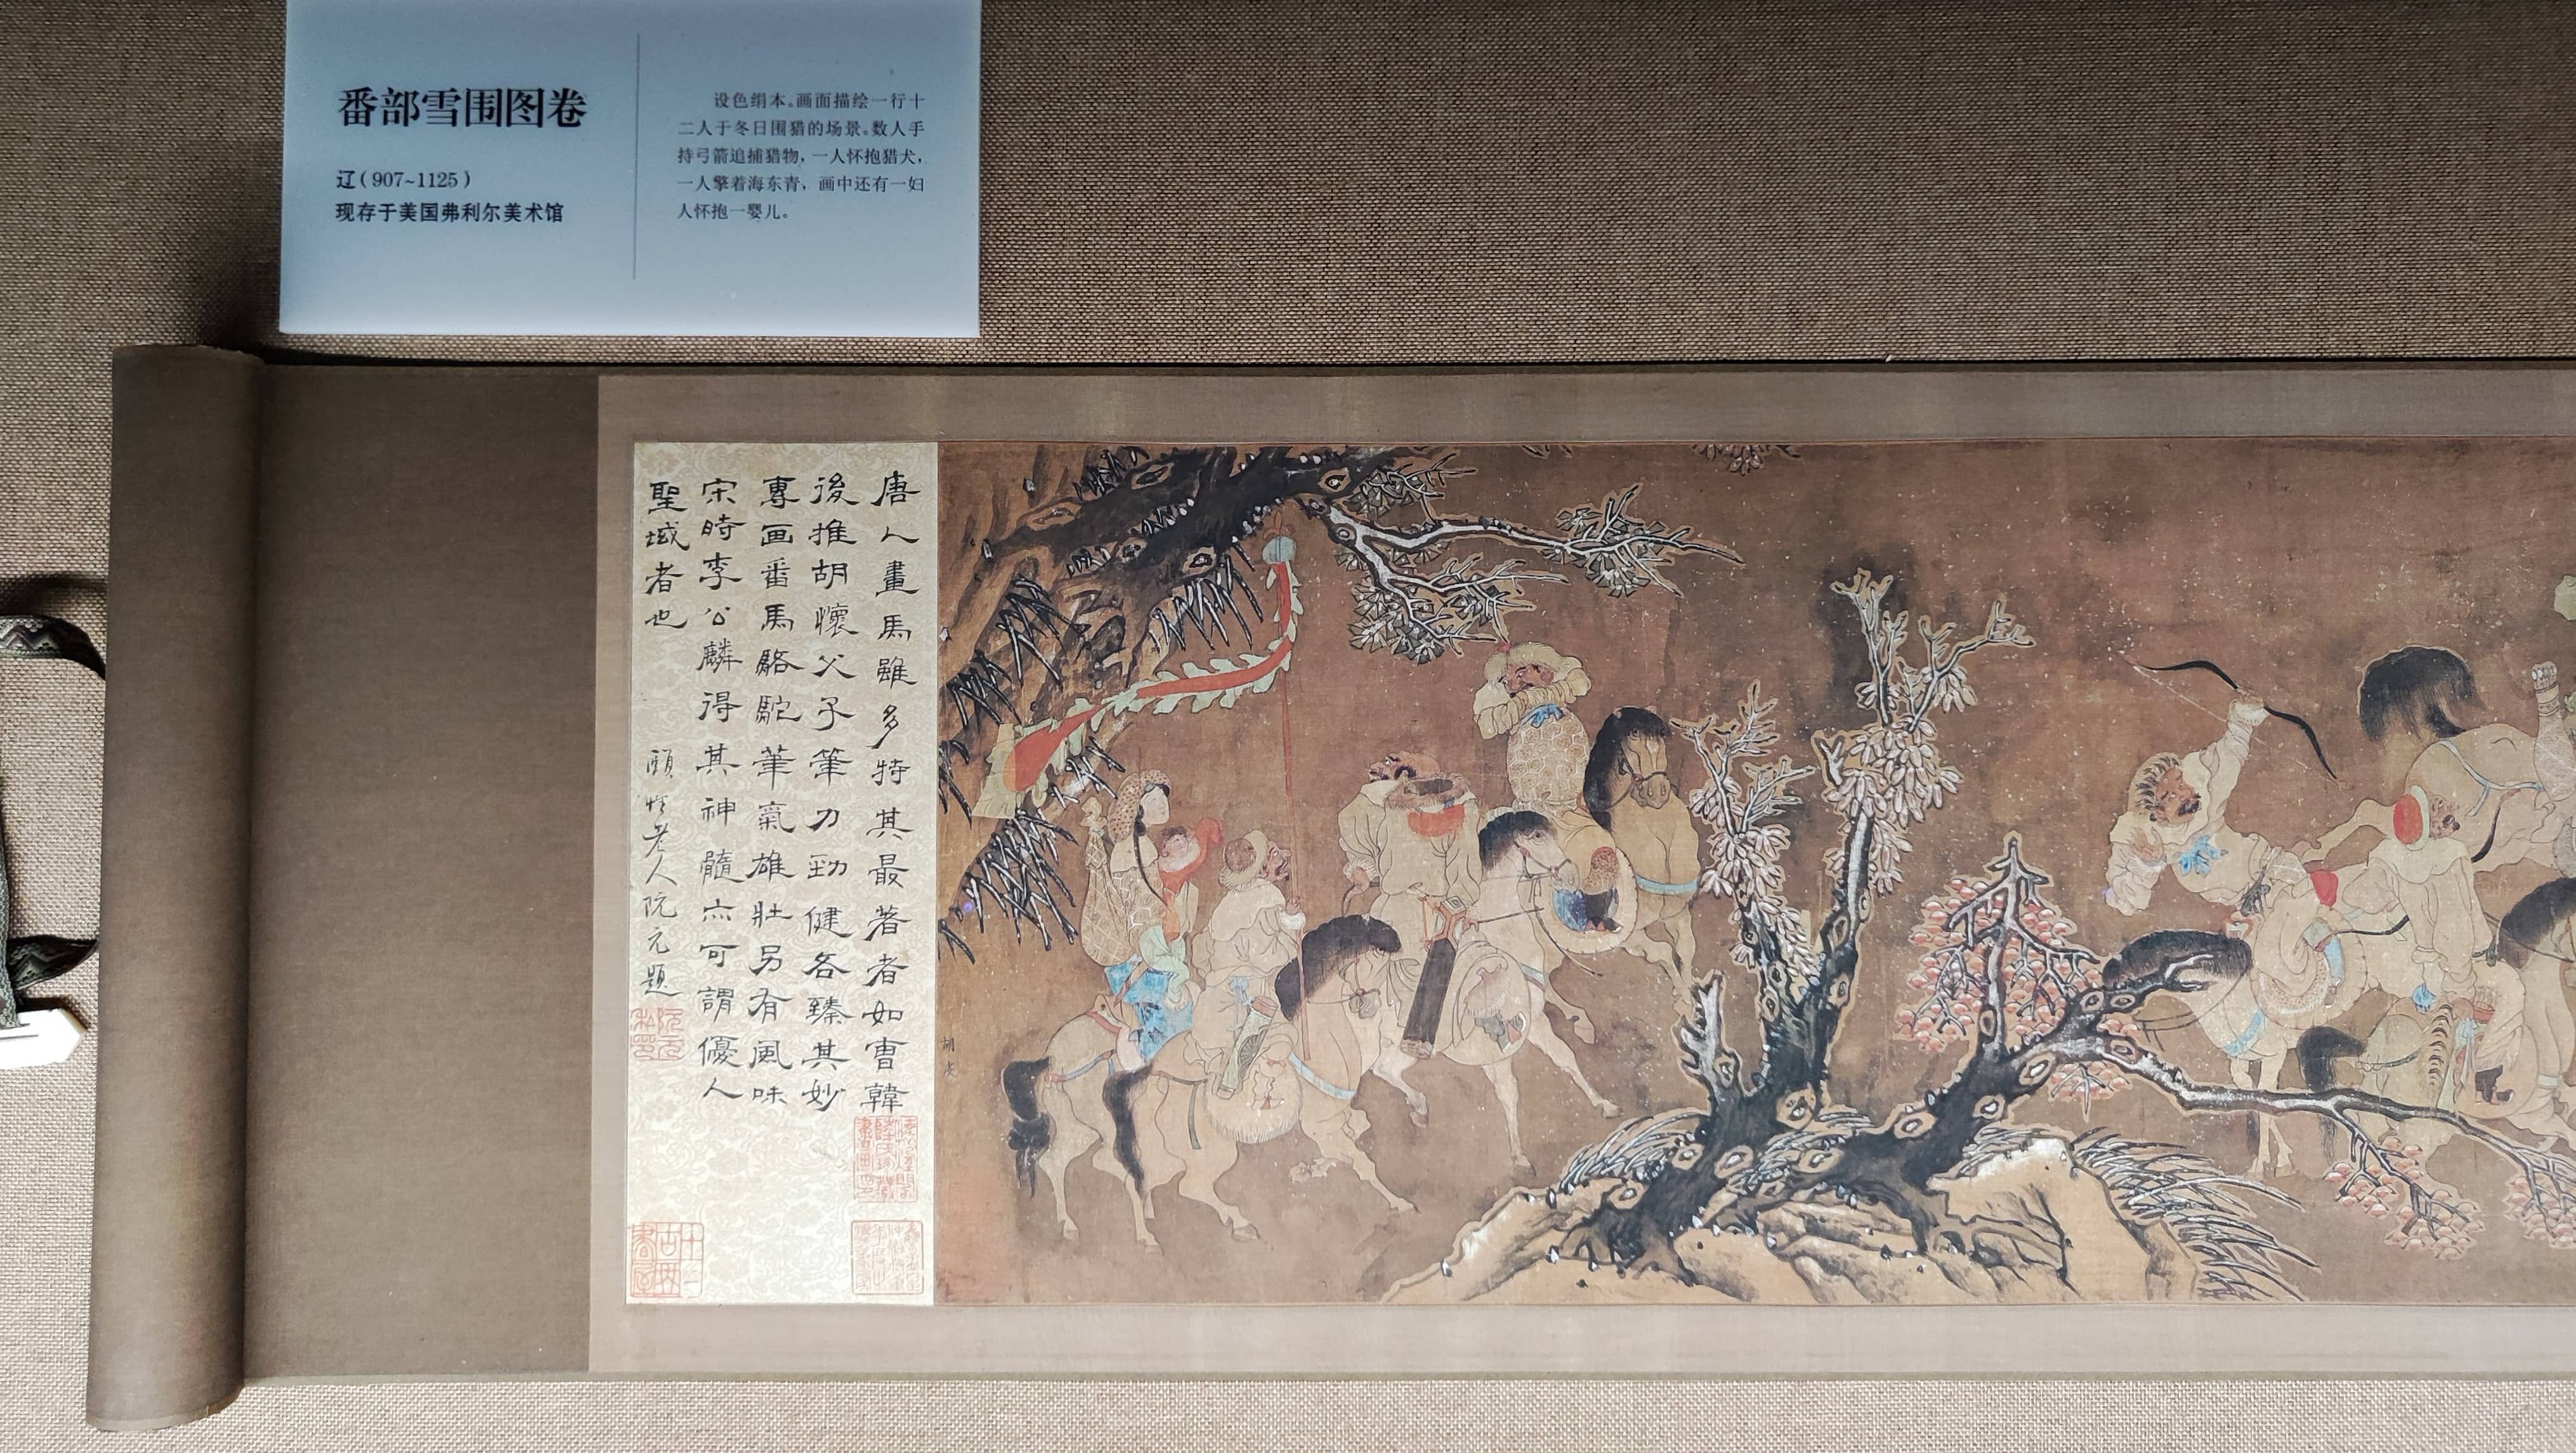 番部雪围图卷
辽（907~1125）
现存于美国弗利尔美术馆
设色绢本。画面描绘一行十
二人于冬日围猎的场景。数人手
持弓箭追捕猎物，一人怀抱猎犬，
一人擎着海东青，画中还有一妇
人怀抱一婴儿。
唐人畫馬雖多特其最著者如曺韓
後推胡懷父子筆力勁健各臻其妙
專画番馬駱駝筆氣雄壯另有風味
宋時李公麟得其神髓亦可謂優人
聖域者也
頤性老人阮元題